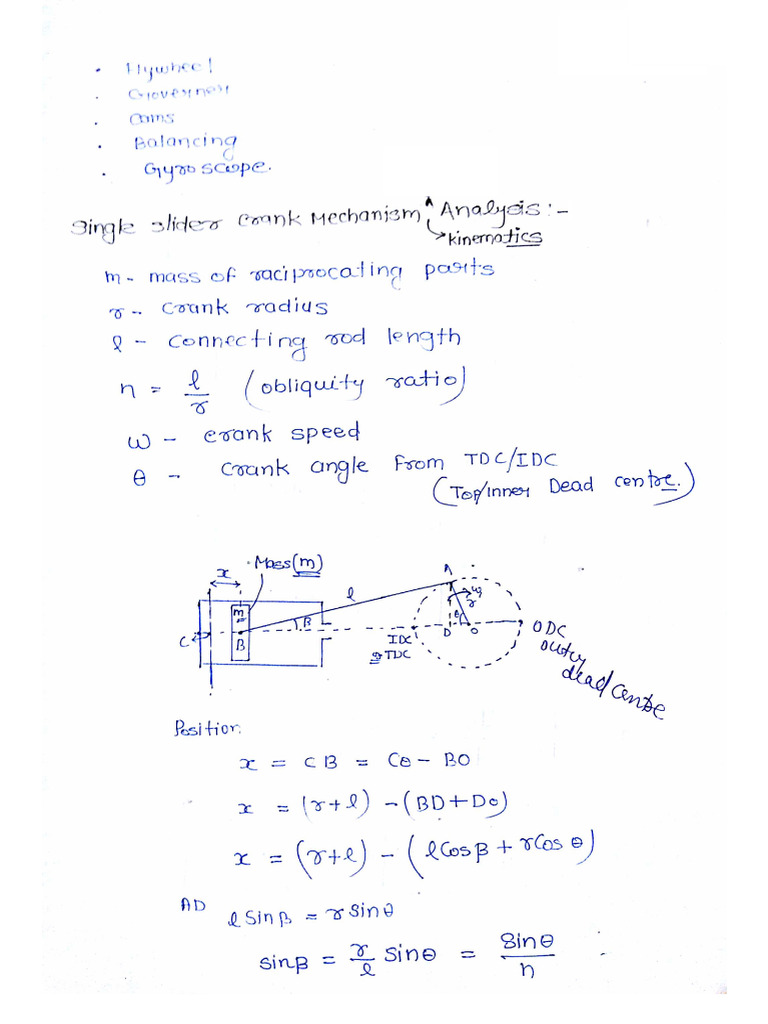 • Flywheel
• Governer
• Cams
• Balancing
• Gyroscope.
Single slider crank Mechanism ^ Analysis :-
↳ kinematics
m - mass of raciprocating parts
r - crank radius
l - connecting rod length
n = l/r (obliquity ratio)
ω - crank speed
θ - crank angle from TDC/IDC
(Top/inner Dead centre.)
x
Mass (m)
l
A
ω
r
m
β
θ
C
B
IDC
TDC
D
O
ODC
outer
dead centre
Position
x = CB = CO - BO
x = (r+l) - (BD+DO)
x = (r+l) - (l cos β + r cos θ)
AD
l sin β = r sin θ
sin β = r/l sin θ = sin θ/n